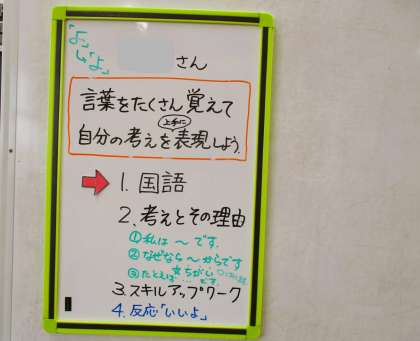 「よ」
↳「よ」
さん
言葉をたくさん覚えて
上手に
自分の考えを表現しよう。
1. 国語
2. 考えとその理由
①私は〜です。
②なぜなら〜からです
③たとえば
3. スキルアップワーク
4. 反応「いいよ」